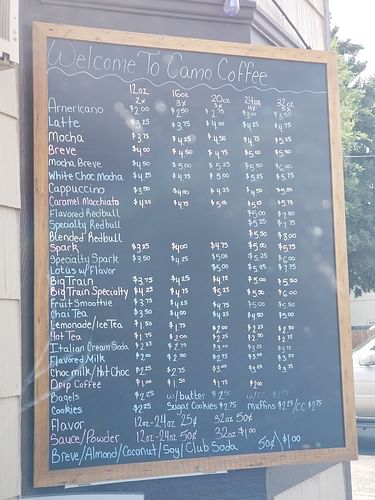 Welcome To Camo Coffee
12oz 16oz 20oz 24oz 32oz
2x 3x 3x 4x
Americano $2.00 $2.50 $2.75 $3.00 $3.50
Latte $3.25 $3.75 $4.00 $4.25 $4.75
Mocha $3.75 $4.25 $4.50 $4.75
Breve $4.00 $4.50 $4.75
Mocha Breve $4.50 $5.00 $5.25 $5.50
White Choc Mocha $4.25 $4.75 $5.00 $5.25 $5.75
Cappuccino $3.50 $4.00 $4.25 $4.50
Caramel Macchiato $4.25 $4.75 $5.00 $5.75
Flavored Redbull $5.00 $7.50
Specialty Redbull $5.25 $7.75
Blended Redbull $5.50 $8.00
Spark $3.25 $4.00 $4.75 $5.00 $5.75
Specialty Spark $3.50 $5.00 $5.25 $6.00
Lotus w/Flavor $5.00 $7.75
Big Train $3.75 $4.25 $4.75 $5.00 $5.50
Big Train Specialty $4.25 $4.75 $5.25 $5.50 $6.00
Fruit Smoothie $3.75 $4.25 $4.75 $5.00 $5.50
Chai Tea $3.50 $4.00 $4.25 $4.50 $5.00
Lemonade/Ice Tea $1.50 $1.75 $2.00 $2.25 $2.75
Hot Tea $1.75 $2.00 $2.25 $2.50
Italian Cream Soda $2.25 $2.75 $3.00
Flavored Milk $2.00 $2.50 $2.75 $3.00 $3.50
Choc milk/Hot Choc $2.25 $2.75 $3.00 $3.75
Drip Coffee $1.00 $1.50 $1.75 $2.00
Bagels $2.25 w/butter $2.50 w/cc $2.75
Cookies $2.25 Sugar Cookies $2.75 muffins $2.25/CC $2.75
Flavor 12oz-24oz 25¢ 32oz 50¢
Sauce/Powder 12oz-24oz 50¢ 32oz $1.00
Breve/Almond/Coconut/Soy/Club Soda 50¢ \ $1.00